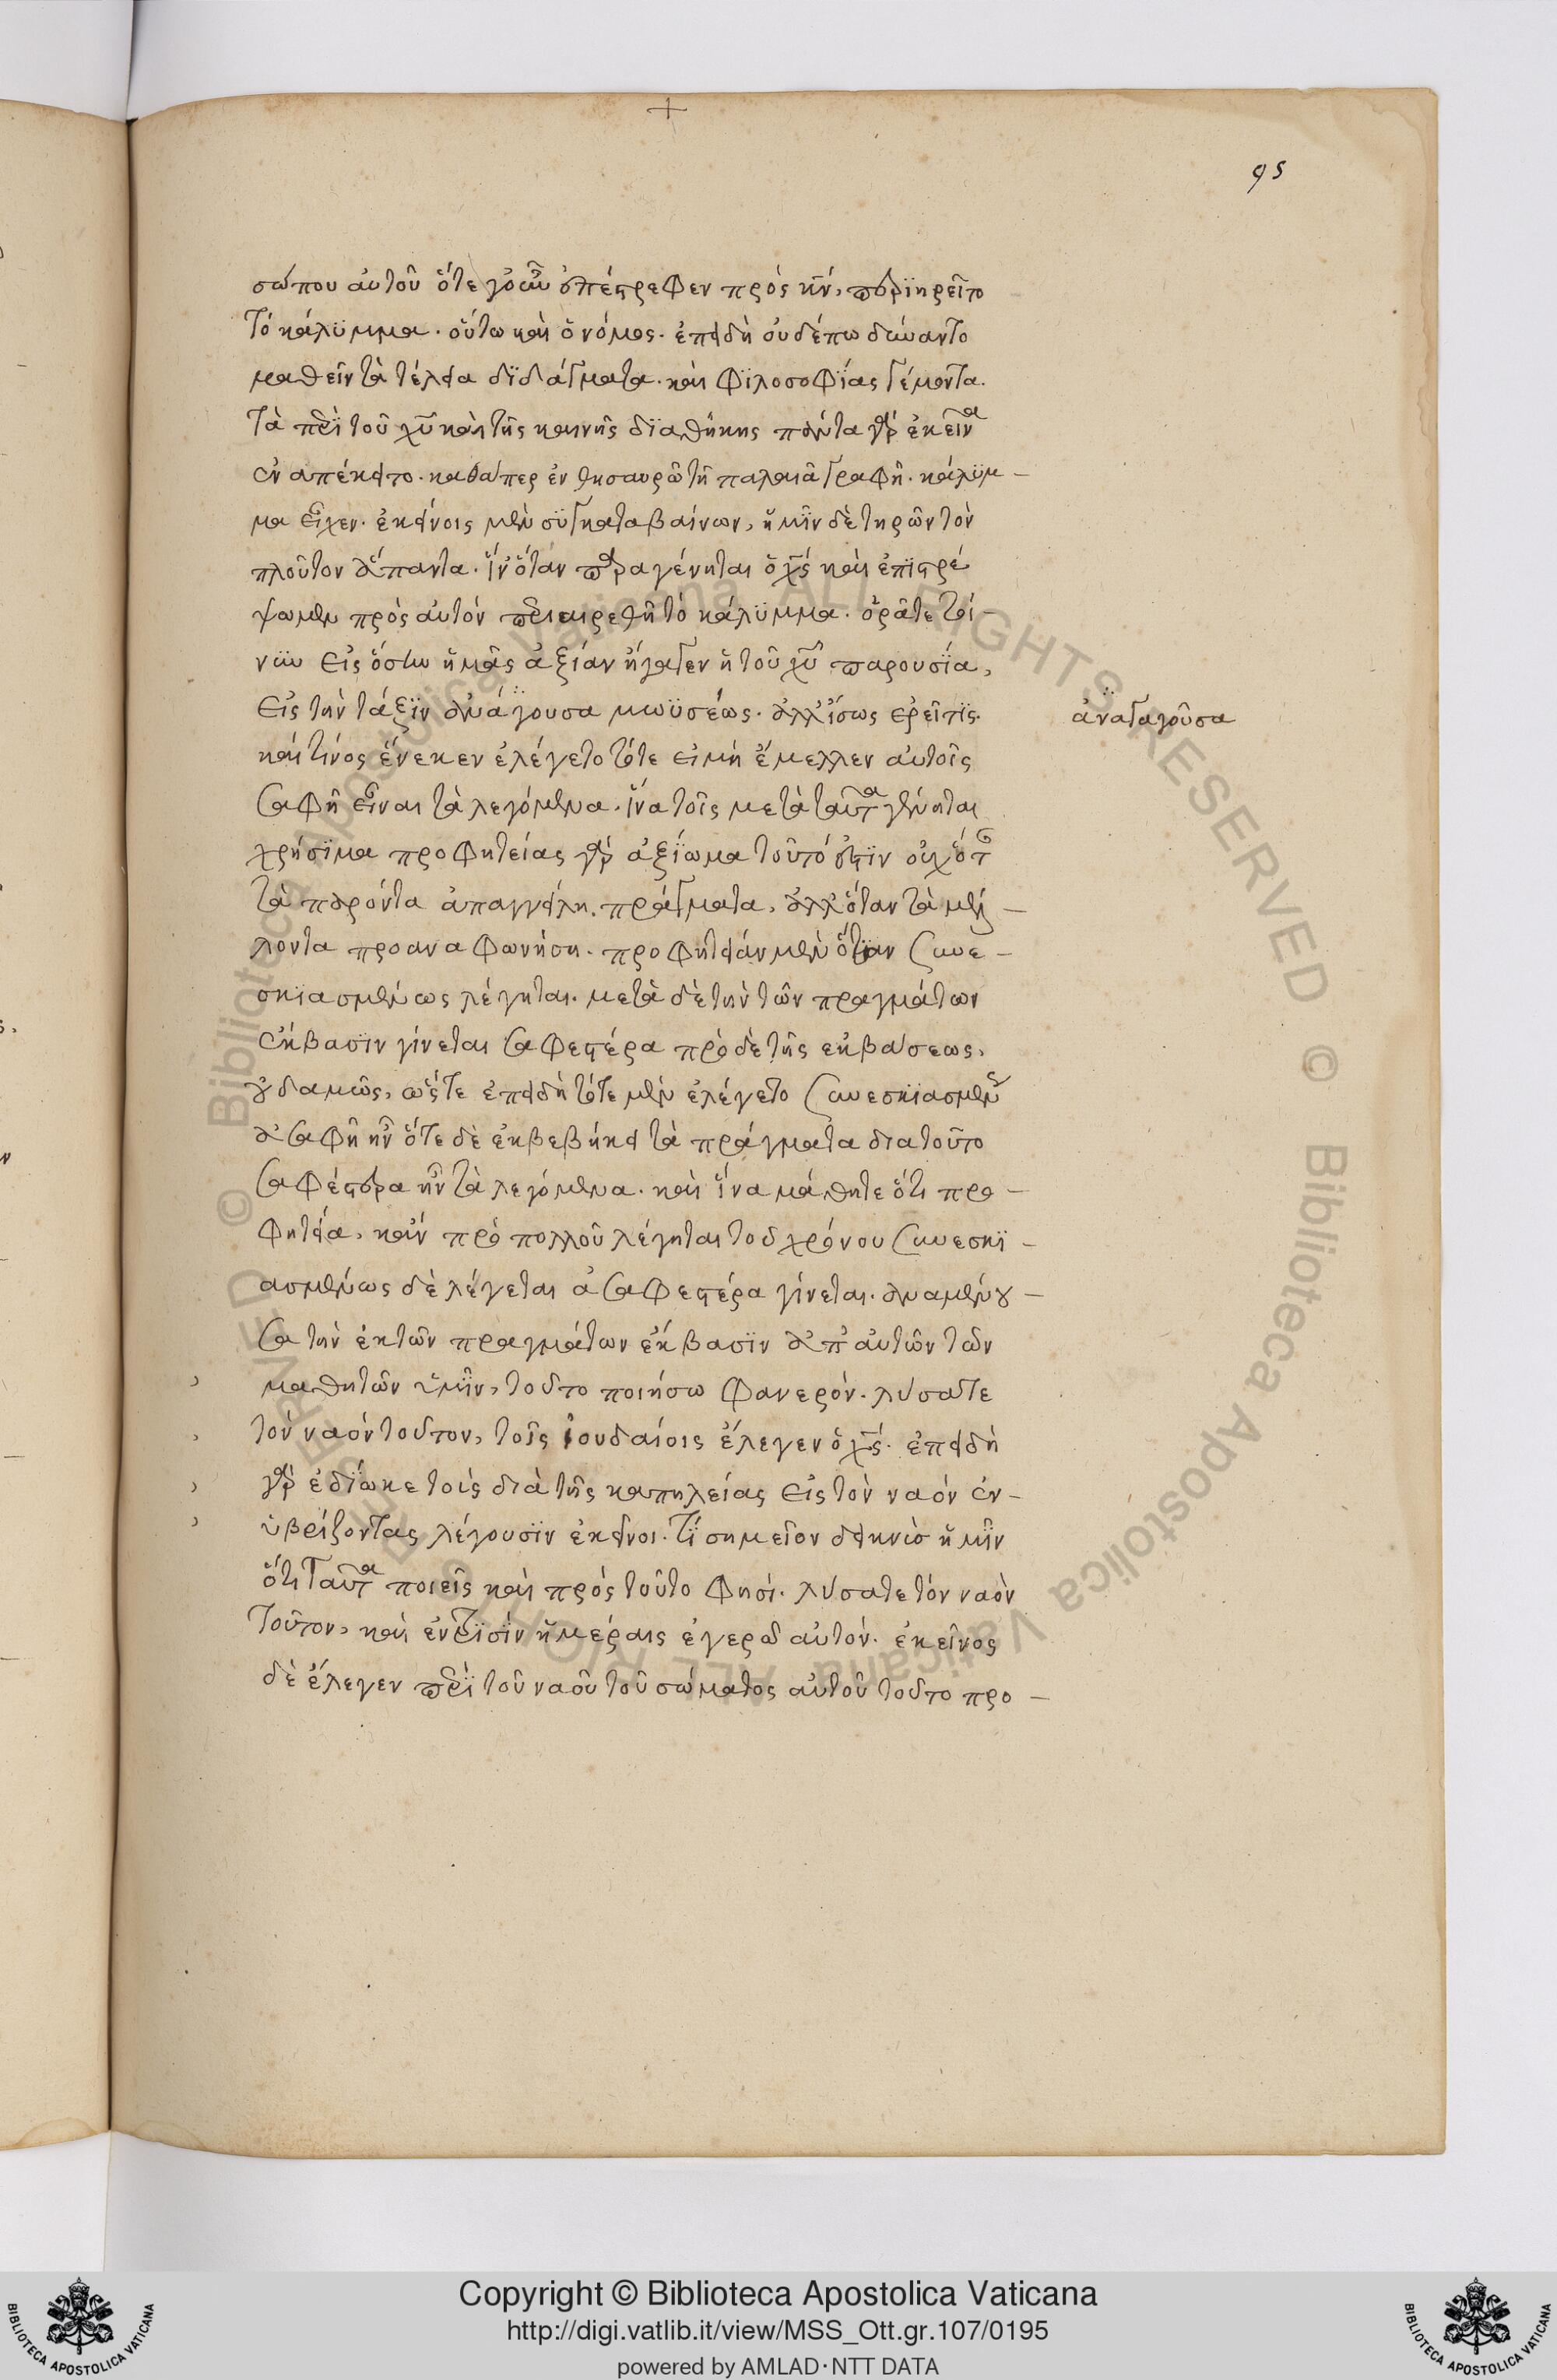 95
σώπου αὐτοῦ ὅτε γοῦν ἐπέστρεφεν πρὸς κν, περιῃρεῖτο
τὸ κάλϋμμα. οὕτω καὶ ὁ νόμος. ἐπειδὴ οὐδέπω δύναντο
μαθεῖν τὰ τέλεια δϊδάγματα. καὶ φϊλοσοφΐας γέμοντα.
τὰ περὶ τοῦ χυ καὶ τῆς καινῆς δϊαθήκης πάντα γὰρ ἐκεῖνα
ἐναπέκειτο. καθάπερ ἐν θησαυρῶ τῆ παλαιᾶ γραφῆ. κάλϋμ-
μα εἶχεν. ἐκείνοις μὲν συγκαταβαίνων, ἡμῖν δὲ τηρῶν τὸν
πλοῦτον ἅπαντα. ἵν' ὅταν παραγένηται ὁ χς καὶ ἐπϊστρέ
ψωμεν πρὸς αὐτὸν περιαιρεθῆ τὸ κάλϋμμα. ὁρᾶτε τοί-
νυν εἰς ὅσην ἡμᾶς ἀξίαν ἤγαγεν ἡ τοῦ χυ παρουσΐα,
εἰς τὴν τάξϊν ἀνάγουσα μωϋσέως. ἀλλ' ἴσως ἐρεῖ τϊς.
ἀναγαγοῦσα
καὶ τίνος ἕνεκεν ἐλέγετο τότε εἰ μὴ ἔμελλεν αὐτοῖς
σαφῆ εἶναι τὰ λεγόμενα. ἵνα τοῖς μετὰ ταῦτα γένηται
χρήσϊμα προφητείας γὰρ ἀξΐωμα τοῦτό ἐστϊν οὐχ ὅταν
τὰ παρόντα ἀπαγγείλη. πράγματα, ἀλλ' ὅταν τὰ μέλ-
λοντα προαναφωνήση. προφητείαν μὲν ὅταν συνε-
σκϊασμένως λέγηται. μετὰ δὲ τὴν τῶν πραγμάτων
ἔκβασϊν γίνεται σαφεστέρα πρὸ δὲ τῆς ἐκβάσεως,
οὐδαμῶς, ὥστε ἐπειδὴ τότε μὲν ἐλέγετο συνεσκϊασμένως
ἀσαφῆ ἦν ὅτε δὲ ἐκβεβήκει τὰ πράγματα διατοῦτο
σαφέστερα ἦν τὰ λεγόμενα. καὶ ἵνα μάθητε ὅτι προ-
φητεία, κἂν πρὸ πολλοῦ λέγηται τοῦ χρόνου συνεσκϊ-
ασμένως δὲ λέγεται ἀσαφεστέρα γίνεται. ἀναμένου-
σα τὴν ἐκ τῶν πραγμάτων ἔκβασϊν ἀπ' αὐτῶν τῶν
μαθητῶν ὑμῖν, τοῦτο ποιήσω φανερόν. λύσατε
τὸν ναὸν τοῦτον, τοῖς ἰουδαίοις ἔλεγεν ὁ χς. ἐπειδὴ
γὰρ ἐδΐωκε τοὺς διὰ τῆς καπηλείας εἰς τὸν ναὸν ἐν-
ὑβρίζοντας λέγουσϊν ἐκεῖνοι. τΐ σημεῖον δεικνύεις ἡμῖν
ὅτι ταῦτα ποιεῖς καὶ πρὸς τοῦτο φησί. λύσατε τὸν ναὸν
τοῦτον, καὶ ἐν τρϊσὶν ἡμέραις ἐγερῶ αὐτόν. ἐκεῖνος
δὲ ἔλεγεν περὶ τοῦ ναοῦ τοῦ σώματος αὐτοῦ τοῦτο προ-
© Biblioteca Apostolica Vaticana ALL RIGHTS RESERVED
© Biblioteca Apostolica Vaticana ALL RIGHTS RESERVED
Copyright © Biblioteca Apostolica Vaticana
http://digi.vatlib.it/view/MSS_Ott.gr.107/0195
powered by AMLAD·NTT DATA
BIBLIOTECA APOSTOLICA VATICANA
BIBLIOTECA APOSTOLICA VATICANA